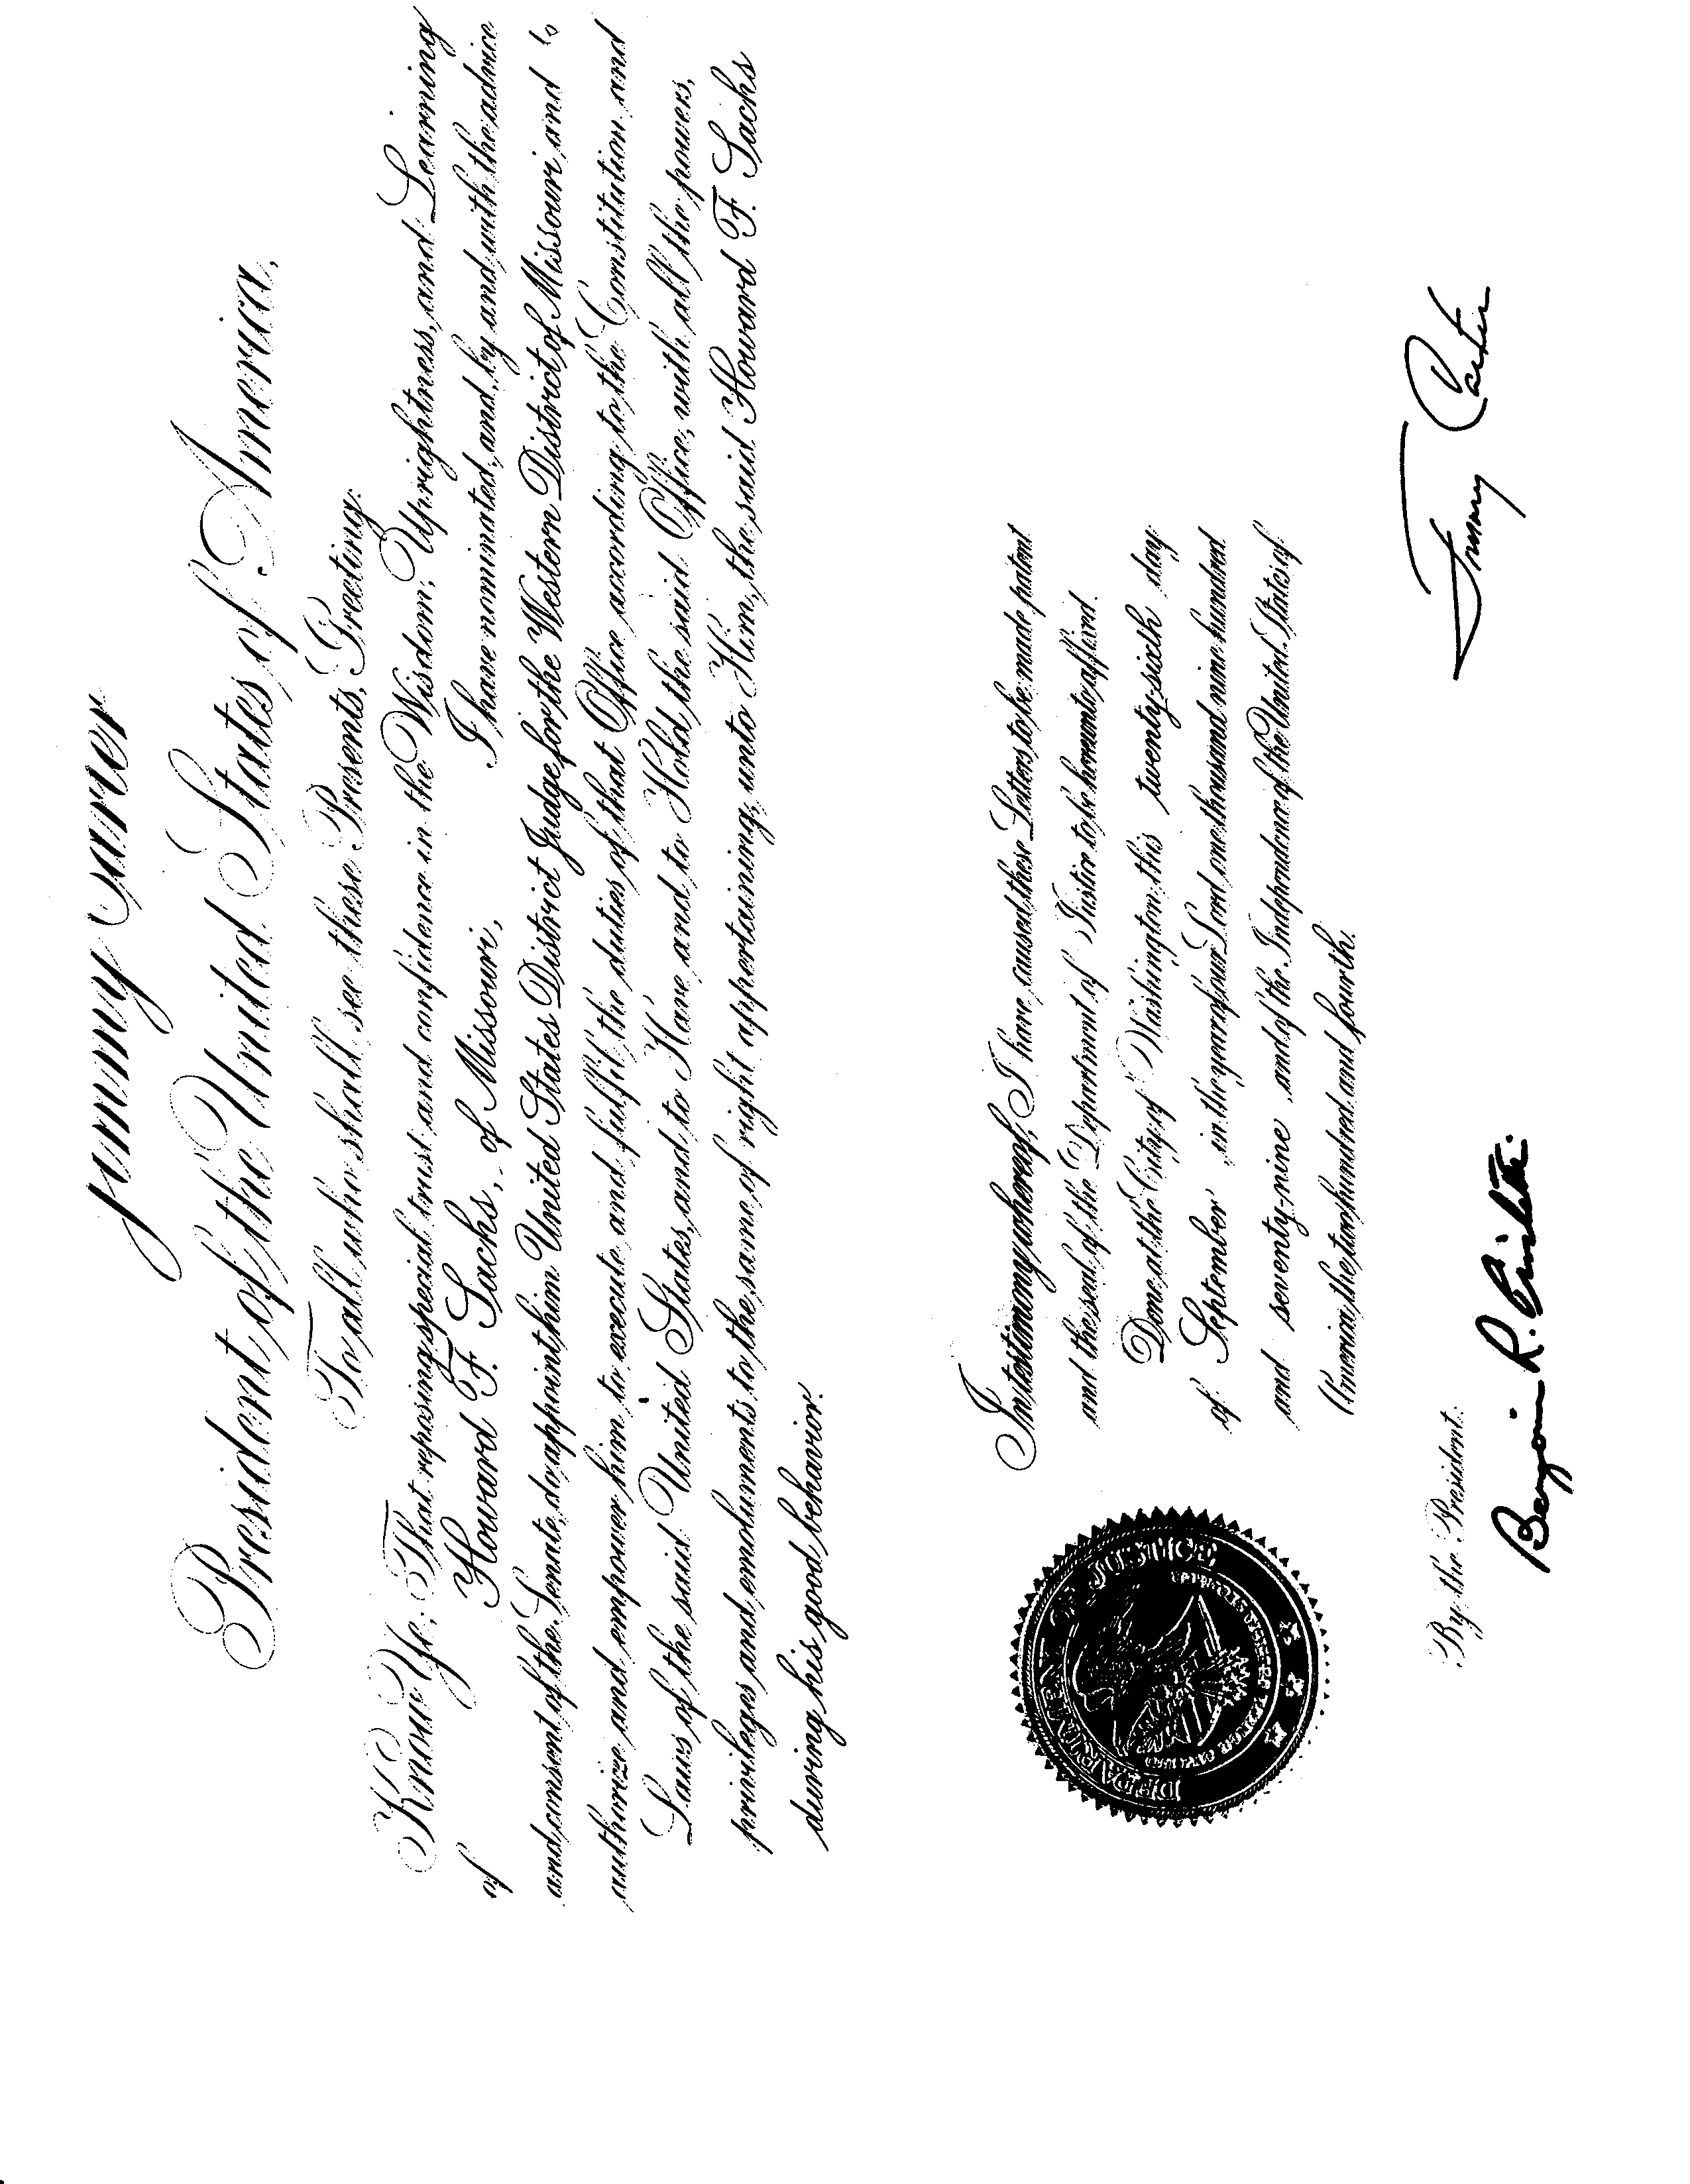 Jimmy Carter
President of the United States of America,
To all who shall see these Presents, Greeting:
Know Ye; That reposing special trust and confidence in the Wisdom, Uprightness, and Learning
of Howard F. Sachs, of Missouri, I have nominated, and, by and with the advice
and consent of the Senate, do appoint him United States District Judge for the Western District of Missouri and
authorize and empower him to execute and fulfil the duties of that Office according to the Constitution and
Laws of the said United States, and to Have and to Hold the said Office, with all the powers,
privileges and emoluments to the same of right appertaining, unto Him, the said Howard F. Sachs
during his good behavior.
In testimony whereof, I have caused these Letters to be made patent
and the seal of the Department of Justice to be hereunto affixed.
Done at the City of Washington this twenty-sixth day
of September in the year of our Lord one thousand nine hundred
and seventy-nine and of the Independence of the United States of
America the two hundred and fourth.
DEPARTMENT OF JUSTICE
Jimmy Carter
By the President:
Benjamin R. Civiletti